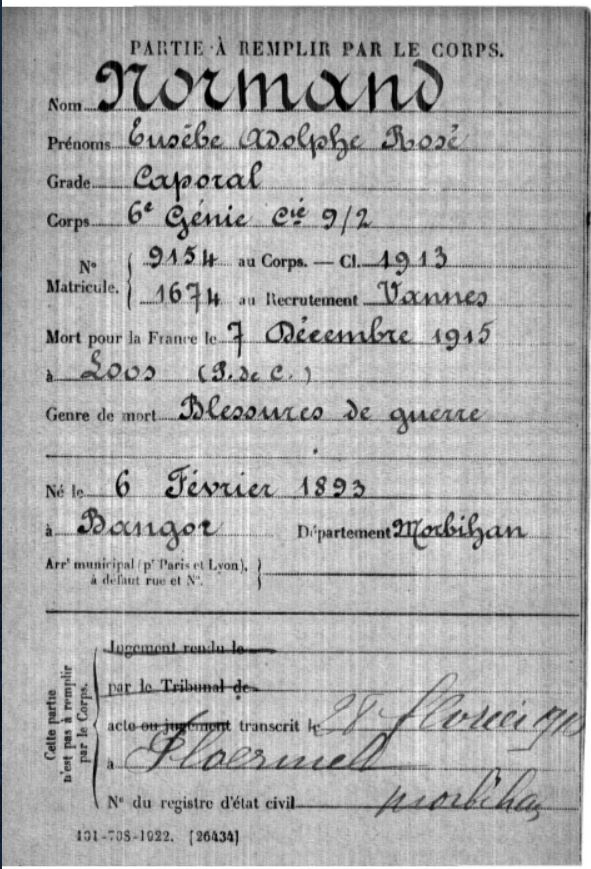 PARTIE À REMPLIR PAR LE CORPS.
Nom Normand
Prénoms Eusèbe Adolphe Rosé
Grade Caporal
Corps 6e Génie Cie 9/2
N° Matricule. { 9154 au Corps. — Cl. 1913
1674 au Recrutement Vannes
Mort pour la France le 7 Décembre 1915
à Loos (P. de C.)
Genre de mort Blessures de guerre
Né le 6 Février 1893
à Bangor Département Morbihan
Arrt municipal (pr Paris et Lyon),
à défaut rue et N°. }
Cette partie n'est pas à remplir par le Corps. {
Jugement rendu le
par le Tribunal de
acte ou jugement transcrit le 28 février
à Ploermel
Morbihan
N° du registre d'état civil
101-708-1922. [26434]